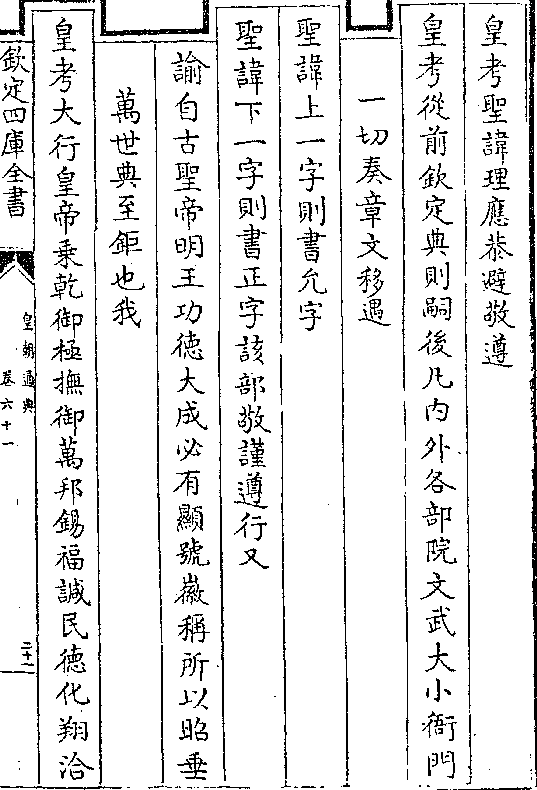 皇考聖諱理應恭避敬遵
皇考從前欽定典則嗣後凡内外各部院文武大小衙門
一切奏章文移遇
聖諱上一字則書允字
聖諱下一字則書正字該部敬謹遵行又
諭自古聖帝明王功德大成必有顯號徽稱所以昭垂
萬世典至鉅也我
皇考大行皇帝乗乾御極撫御萬邦錫福諴民德化翔洽
欽定四庫全書
皇朝通典
卷六十一
二十一